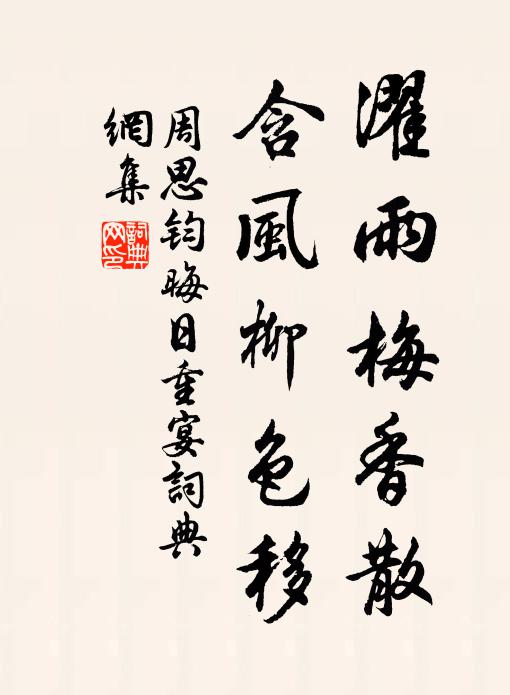 濯雨梅香散
含風柳色移
周思鈞晦日重宴詞典
網集
詞典網印